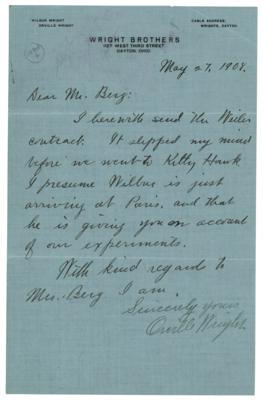 WILBUR WRIGHT
ORVILLE WRIGHT
CABLE ADDRESS:
WRIGHTS, DAYTON
WRIGHT BROTHERS
1127 WEST THIRD STREET
DAYTON, OHIO
May 27, 1908.
Dear Mr. Berg:
I herewith send the Weiller
contract. It slipped my mind
before we went to Kitty Hawk
I presume Wilbur is just
arriving at Paris, and that
he is giving you an account
of our experiments.
With kind regards to
Mrs. Berg I am
Sincerely yours
Orville Wright.